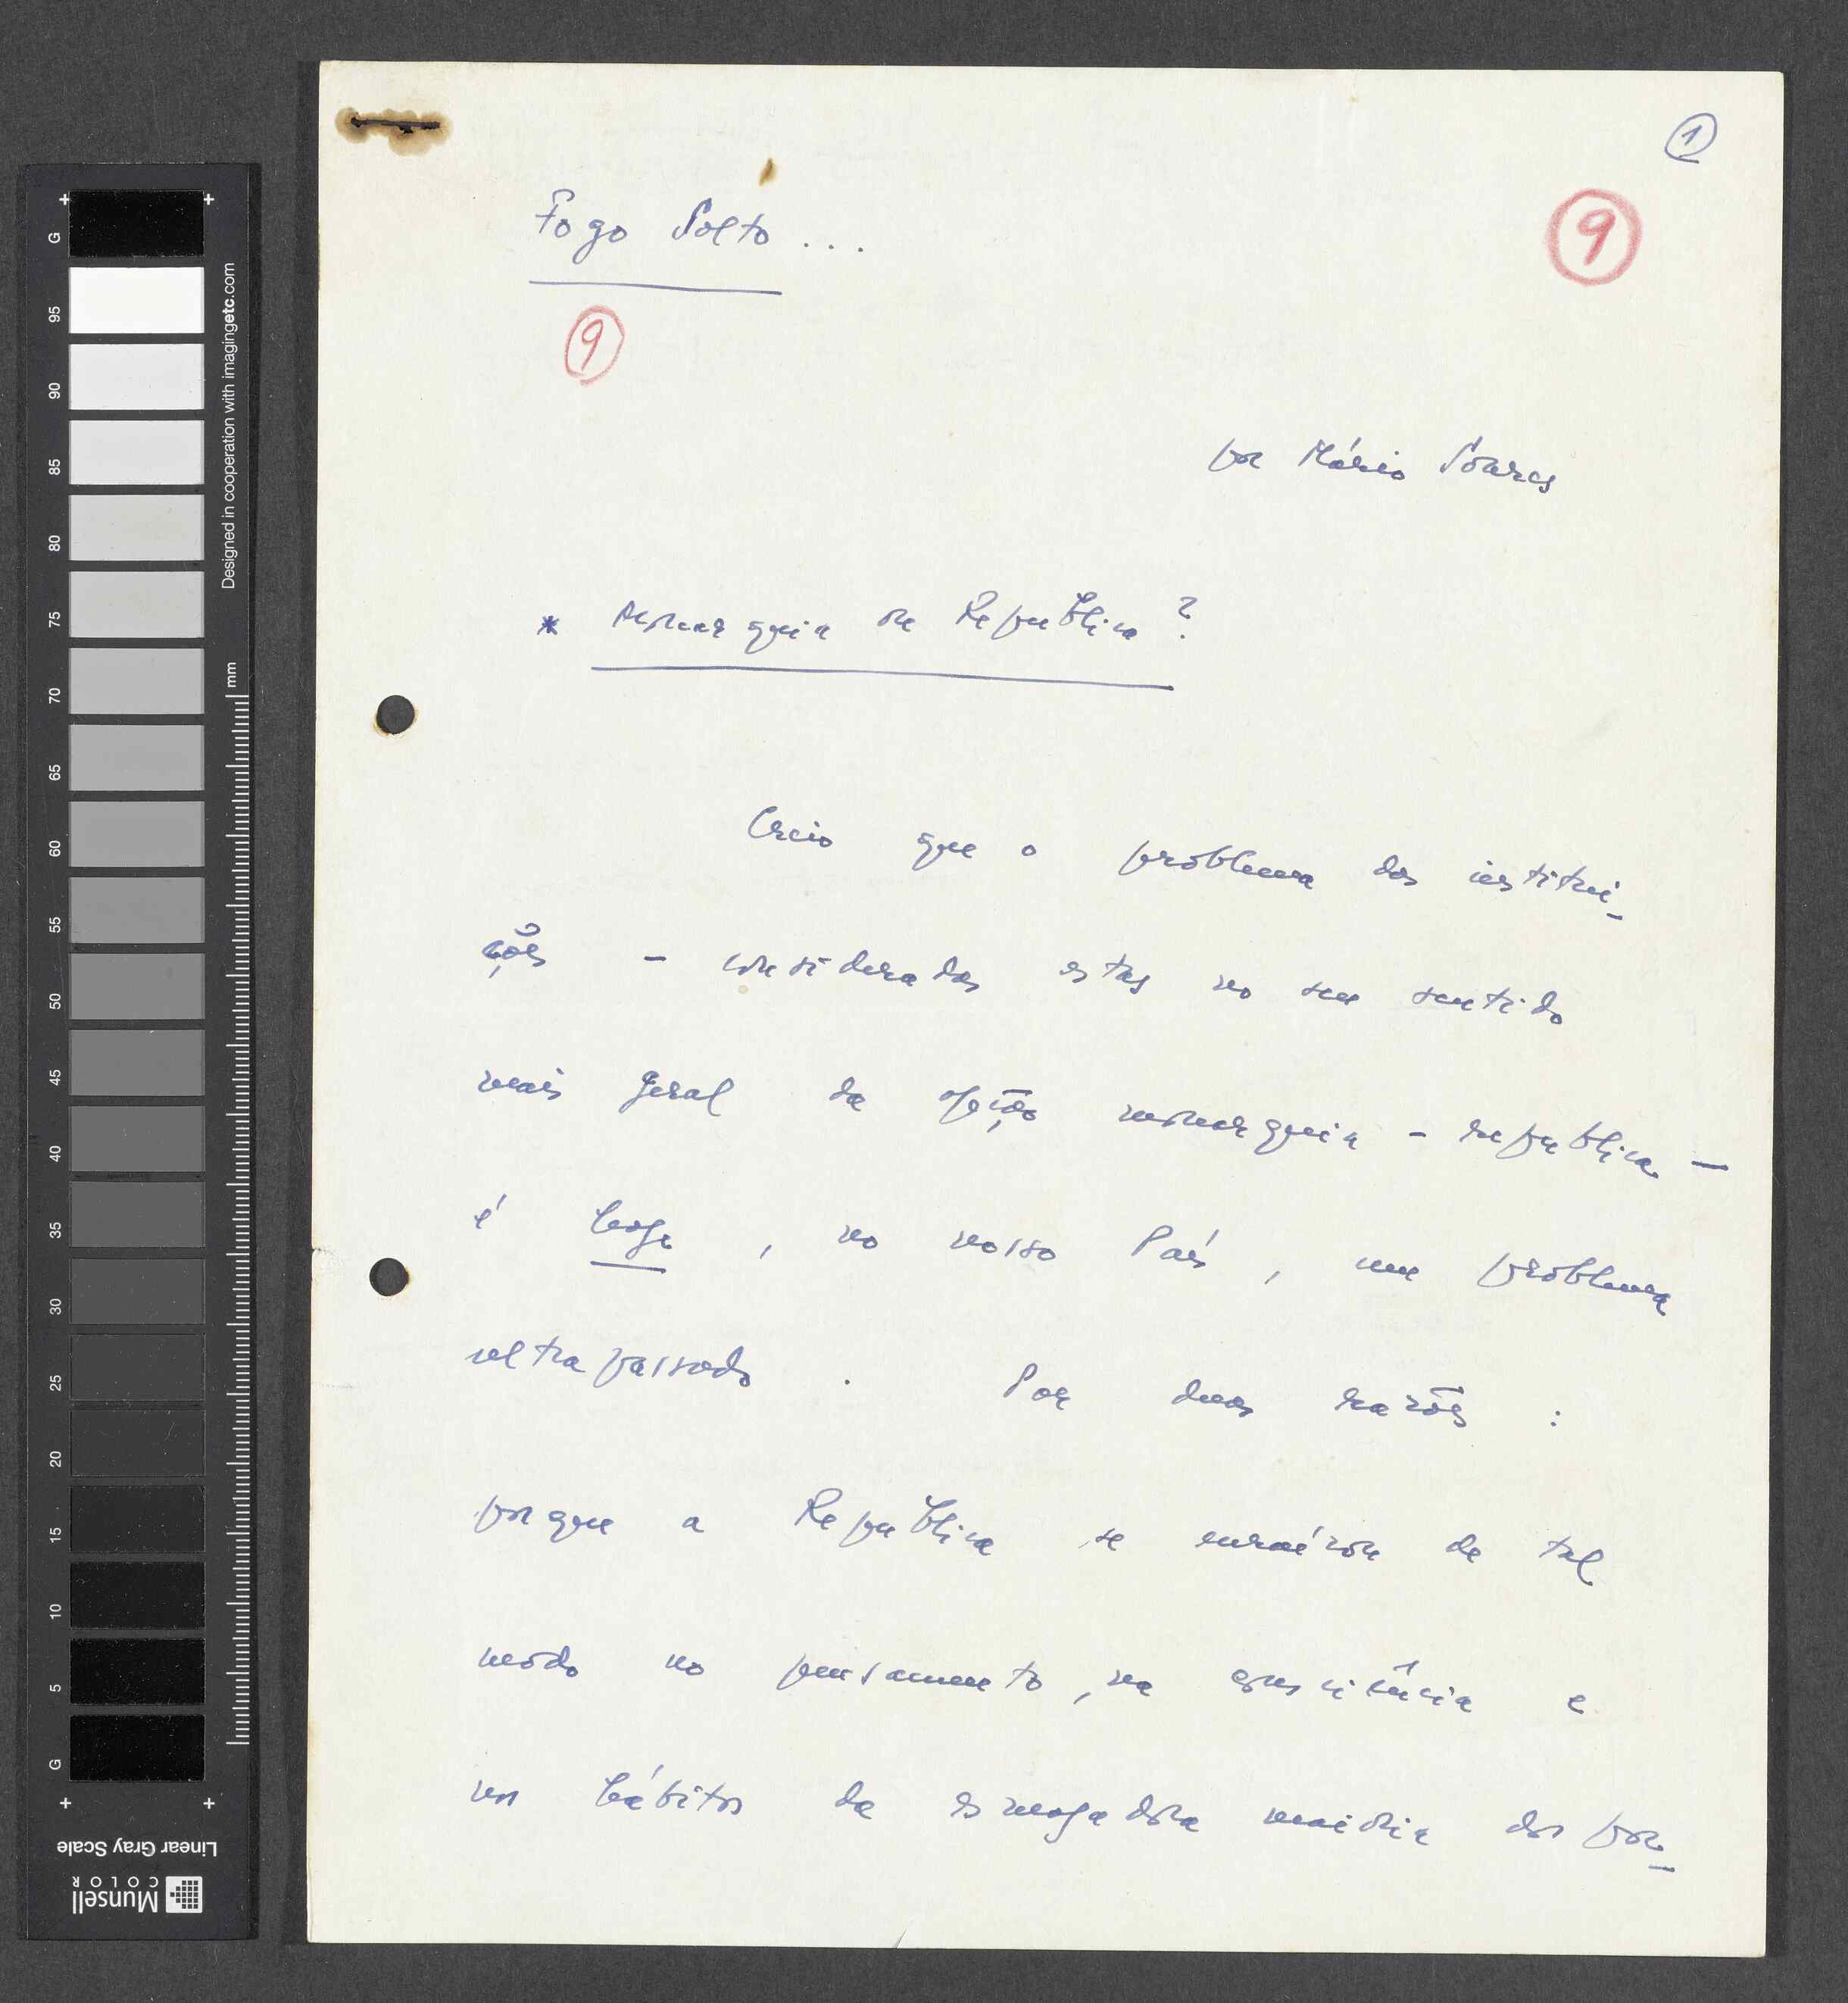 1
Fogo Solto ...
9
9
por Mário Soares
* Monarquia ou Republica?
Creio que o problema das institui-
ções - consideradas estas no seu sentido
mais geral da opção monarquia - republica -
é hoje, no nosso País, um problema
ultrapassado. Por duas razões:
porque a Republica se enraízou de tal
modo no pensamento, na consciência e
nos hábitos da esmagadora maioria dos por-
G
95
90
85
80
75
70
65
60
55
50
45
40
35
30
25
20
15
10
5
G
mm
Designed in cooperation with imagingetc.com
Linear Gray Scale
Munsell
COLOR